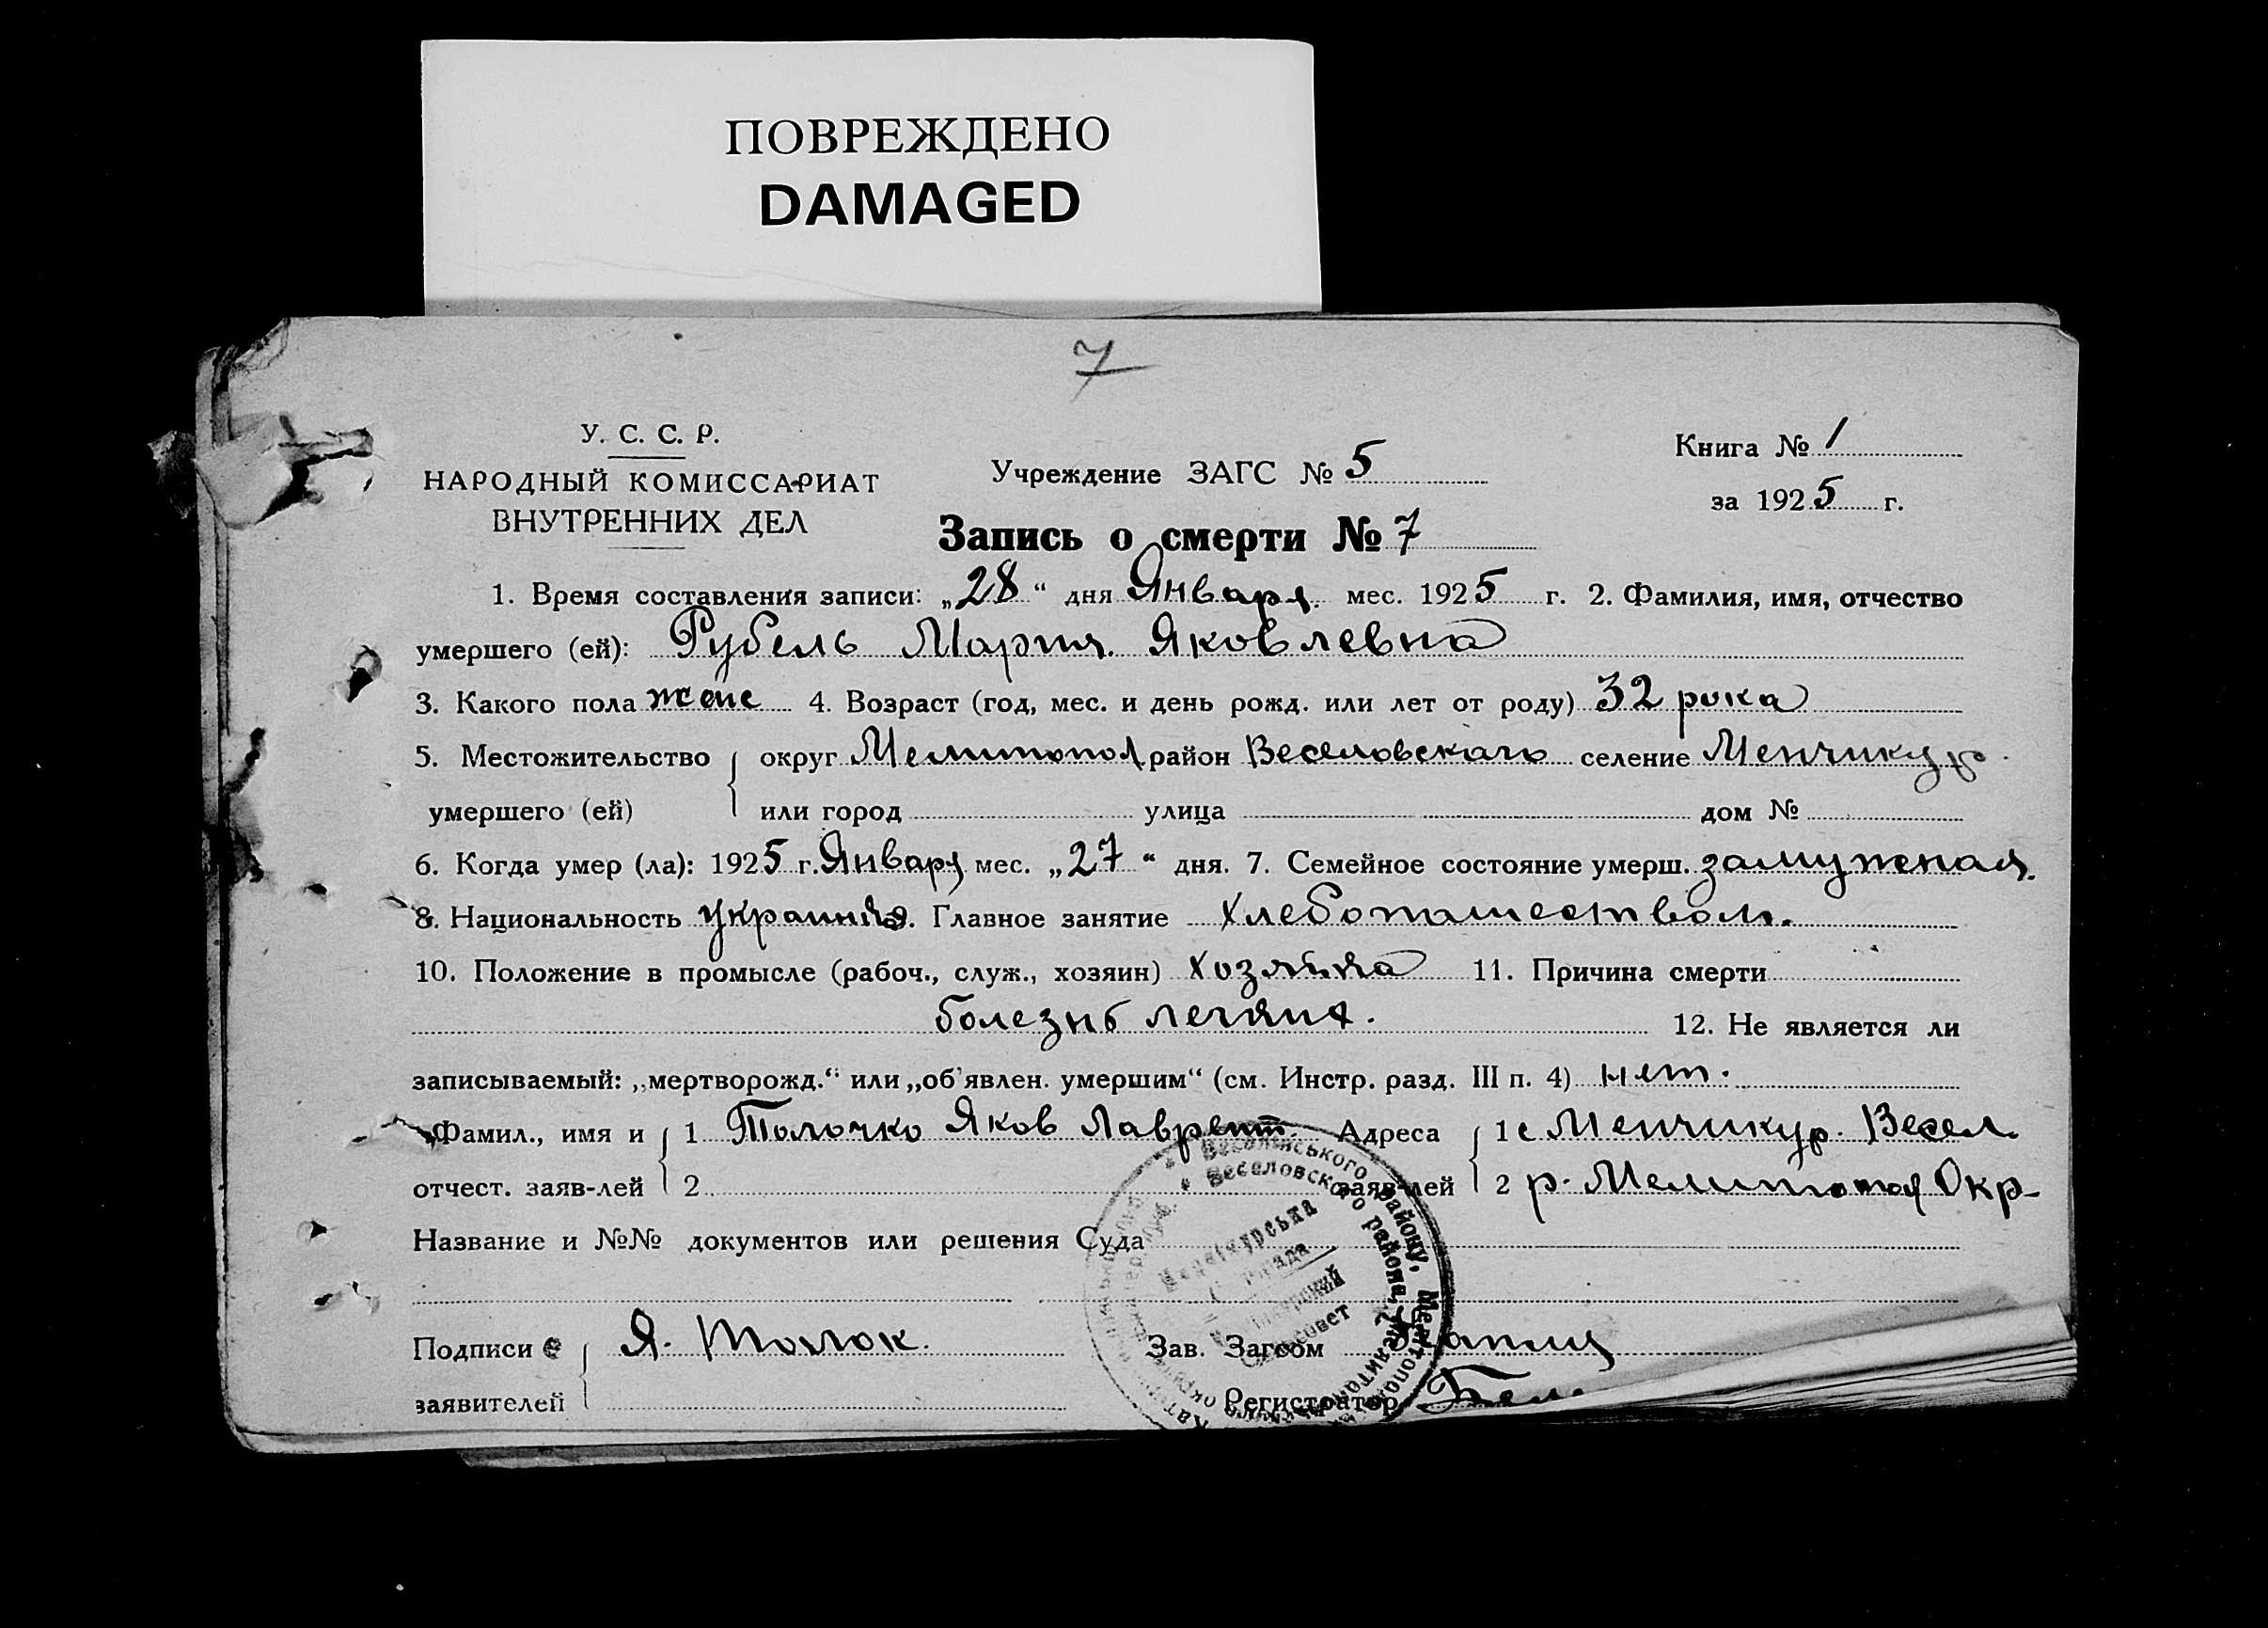 ПОВРЕЖДЕНО
DAMAGED
7
У. С. С. Р.
НАРОДНЫЙ КОМИССАРИАТ
ВНУТРЕННИХ ДЕЛ
Учреждение ЗАГС № 5
Книга № 1
за 1925 г.
Запись о смерти № 7
1. Время составления записи: „28“ дня Января мес. 1925 г. 2. Фамилия, имя, отчество
умершего (ей): Рубель Мария Яковлевна
3. Какого пола женс 4. Возраст (год, мес. и день рожд. или лет от роду) 32 рока
5. Местожительство округ Мелитопол район Веселовскаго селение Менчикур
умершего (ей) или город улица дом №
6. Когда умер (ла): 1925 г. Январь мес. „27“ дня. 7. Семейное состояние умерш. замужная
8. Национальность 9. Главное занятие
10. Положение в промысле (рабоч., служ., хозяин) хозяйка 11. Причина смерти
болезнь легких. 12. Не является ли
записываемый: „мертворожд.“ или „об'явлен. умершим“ (см. Инстр. разд. III п. 4) нет.
Фамил., имя и 1 Толочко Яков Лаврент Адреса 1 с Менчикур. Весел.
отчест. заяв-лей 2 заяв-лей 2 р. Мелитопол Окр-
Название и №№ документов или решения Суда
Подписи Я. Толок. Зав. Загсом
заявителей Регистратор
Веселовского района,